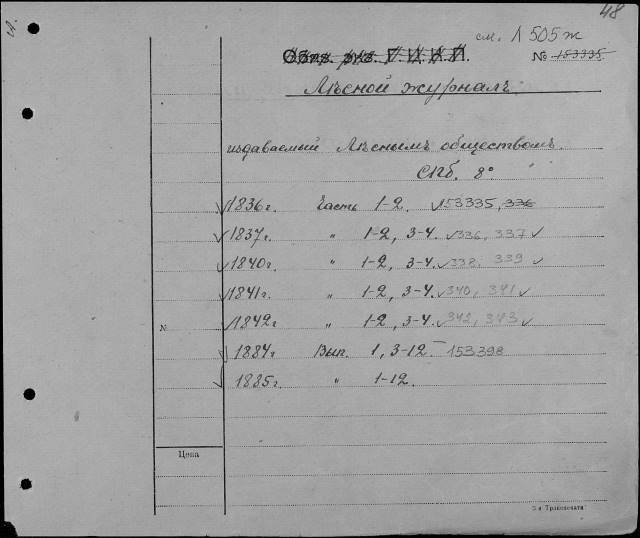 48
см. Л 505 ж
Обяз. экз. Г. И. К. П.
№ 153335
Лѣсной журналъ.
издаваемый Лѣснымъ обществомъ.
СПб. 8°
1836 г. Часть 1-2. 153335, 336
1837 г. " 1-2, 3-4. 336, 337
1840 г. " 1-2, 3-4. 338, 339
1841 г. " 1-2, 3-4. 340, 341
1842 г. " 1-2, 3-4. 342, 343
№
1884 г Вып. 1, 3-12. 153398
1885 г. " 1-12.
Цена